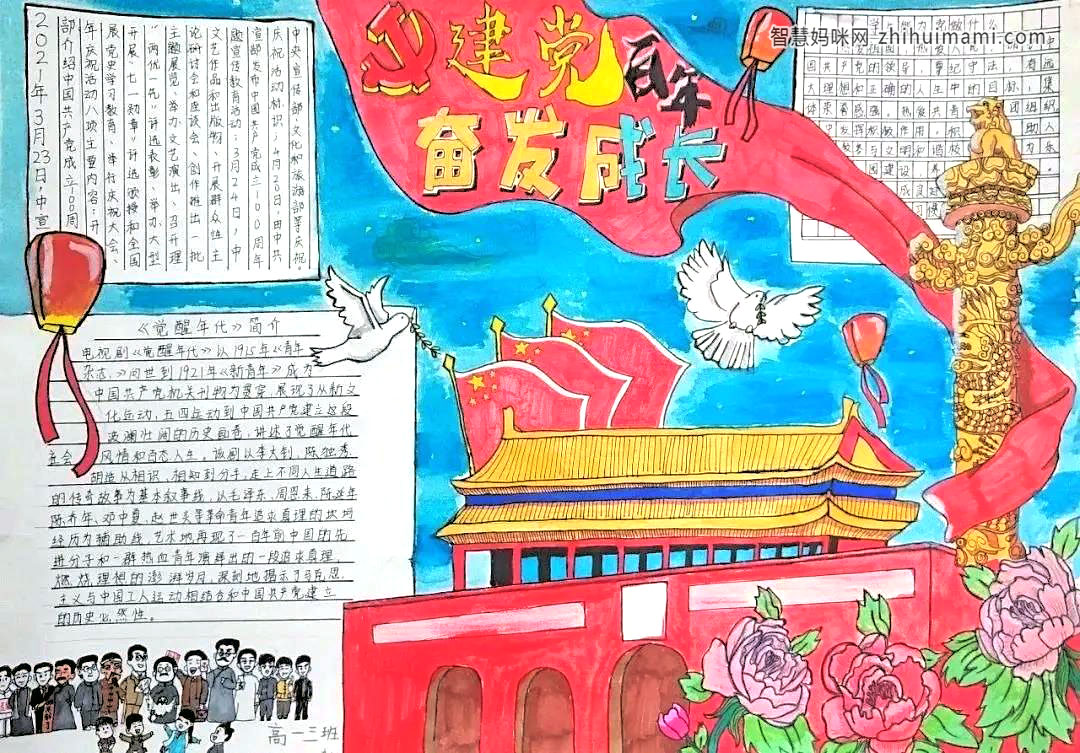 建党百年
奋发成长
智慧妈咪网 zhihuimami.com
2021年3月23日,中宣
部介绍中国共产党成立100周
年庆祝活动八项主要内容:开
展党史学习教育、举行庆祝大会、
开展“七一勋章”评选颁授和全国
“两优一先”评选表彰、举办大型
主题展览、举办文艺演出、召开理
论研讨会和座谈会、创作推出一批
文艺作品和出版物、开展群众性主
题宣传教育活动。3月24日,中
宣部发布中国共产党成立100周年
庆祝活动标识;4月20日,由中共
中央宣传部、文化和旅游部等庆祝。
学生能力克做什么
国共产党的领导,遵纪守法,有远
大理想和正确的人生中的目标,集
体荣誉感强,热爱共青团组织
中发挥模教作用,积助人为乐
参与文明和谐校
园建设,养
成良好
惯
《觉醒年代》简介
电视剧《觉醒年代》以1915年《青年
杂志》问世到1921年《新青年》成为
中国共产党机关刊物为贯穿,展现了从新文
化运动、五四运动到中国共产党建立这段
波澜壮阔的历史画卷,讲述了觉醒年代
社会风情和百态人生。该剧以李大钊、陈独秀、
胡适从相识、相知到分手,走上不同人生道路
的传奇故事为基本叙事线,以毛泽东、周恩来、陈延年、
陈乔年、邓中夏、赵世炎等革命青年追求真理的坎坷
经历为辅助线,艺术地再现了一百年前中国的先
进分子和一群热血青年演绎出的一段追求真理、
燃烧理想的澎湃岁月,深刻地揭示了马克思
主义与中国工人运动相结合和中国共产党建立
的历史必然性。
高一三班